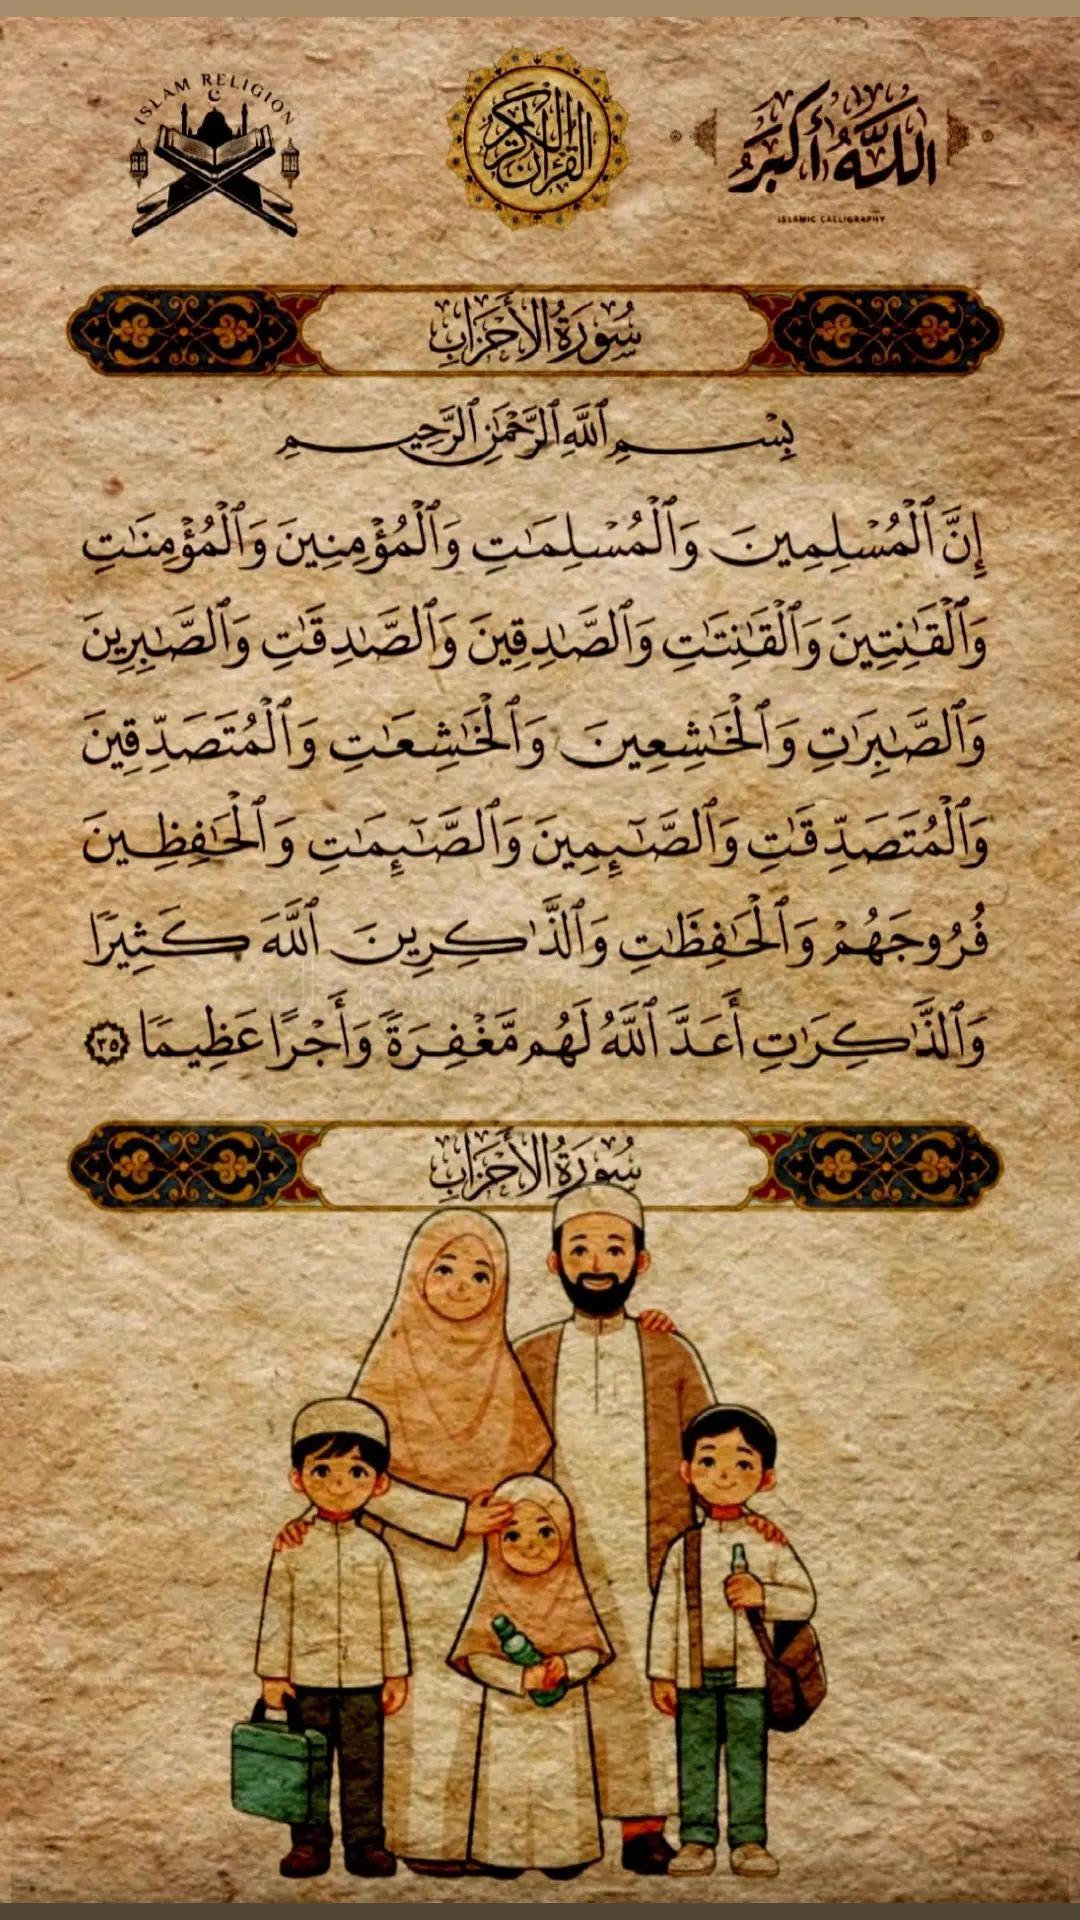 ISLAM RELIGION
القرآن الكريم
اللَّهُ أَكْبَرُ
ISLAMIC CALLIGRAPHY
سُورَةُ الأَحْزَابِ
بِسْمِ ٱللَّهِ ٱلرَّحْمَٰنِ ٱلرَّحِيمِ
إِنَّ ٱلْمُسْلِمِينَ وَٱلْمُسْلِمَٰتِ وَٱلْمُؤْمِنِينَ وَٱلْمُؤْمِنَٰتِ
وَٱلْقَٰنِتِينَ وَٱلْقَٰنِتَٰتِ وَٱلصَّٰدِقِينَ وَٱلصَّٰدِقَٰتِ وَٱلصَّٰبِرِينَ
وَٱلصَّٰبِرَٰتِ وَٱلْخَٰشِعِينَ وَٱلْخَٰشِعَٰتِ وَٱلْمُتَصَدِّقِينَ
وَٱلْمُتَصَدِّقَٰتِ وَٱلصَّٰٓئِمِينَ وَٱلصَّٰٓئِمَٰتِ وَٱلْحَٰفِظِينَ
فُرُوجَهُمْ وَٱلْحَٰفِظَٰتِ وَٱلذَّٰكِرِينَ ٱللَّهَ كَثِيرًا
وَٱلذَّٰكِرَٰتِ أَعَدَّ ٱللَّهُ لَهُم مَّغْفِرَةً وَأَجْرًا عَظِيمًا ٣٥
سُورَةُ الأَحْزَابِ